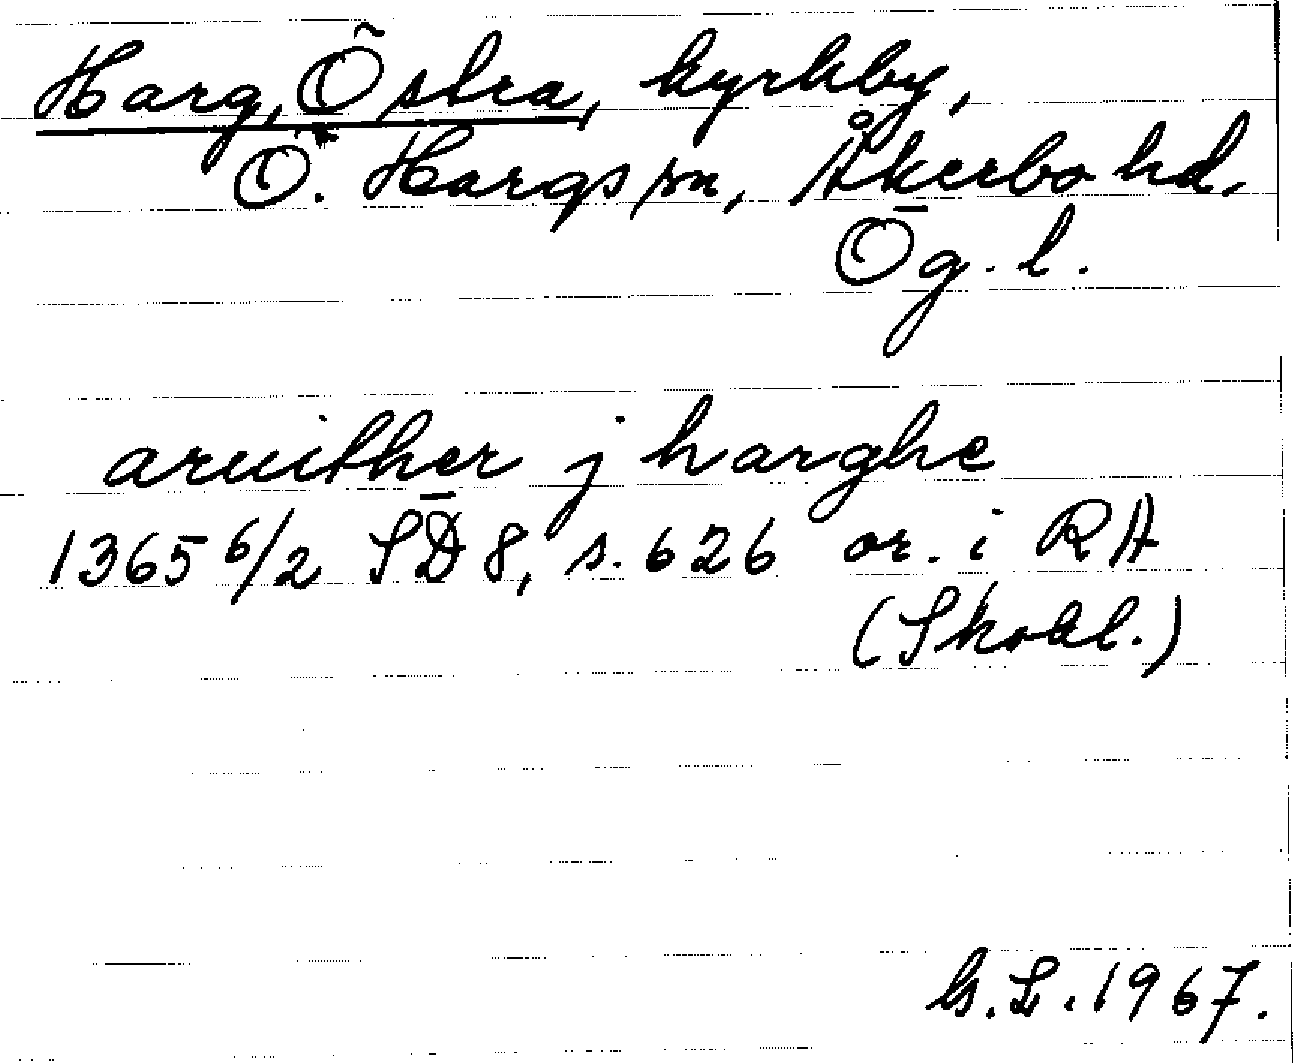 Harg, Östra, kyrkby,
Ö. Hargs sn, Åkerbo hd.
Ög. l.
aruither j harghe
1365 6/2 SD 8, s. 626 or. i RA
(Skokl.)
G. L. 1967.